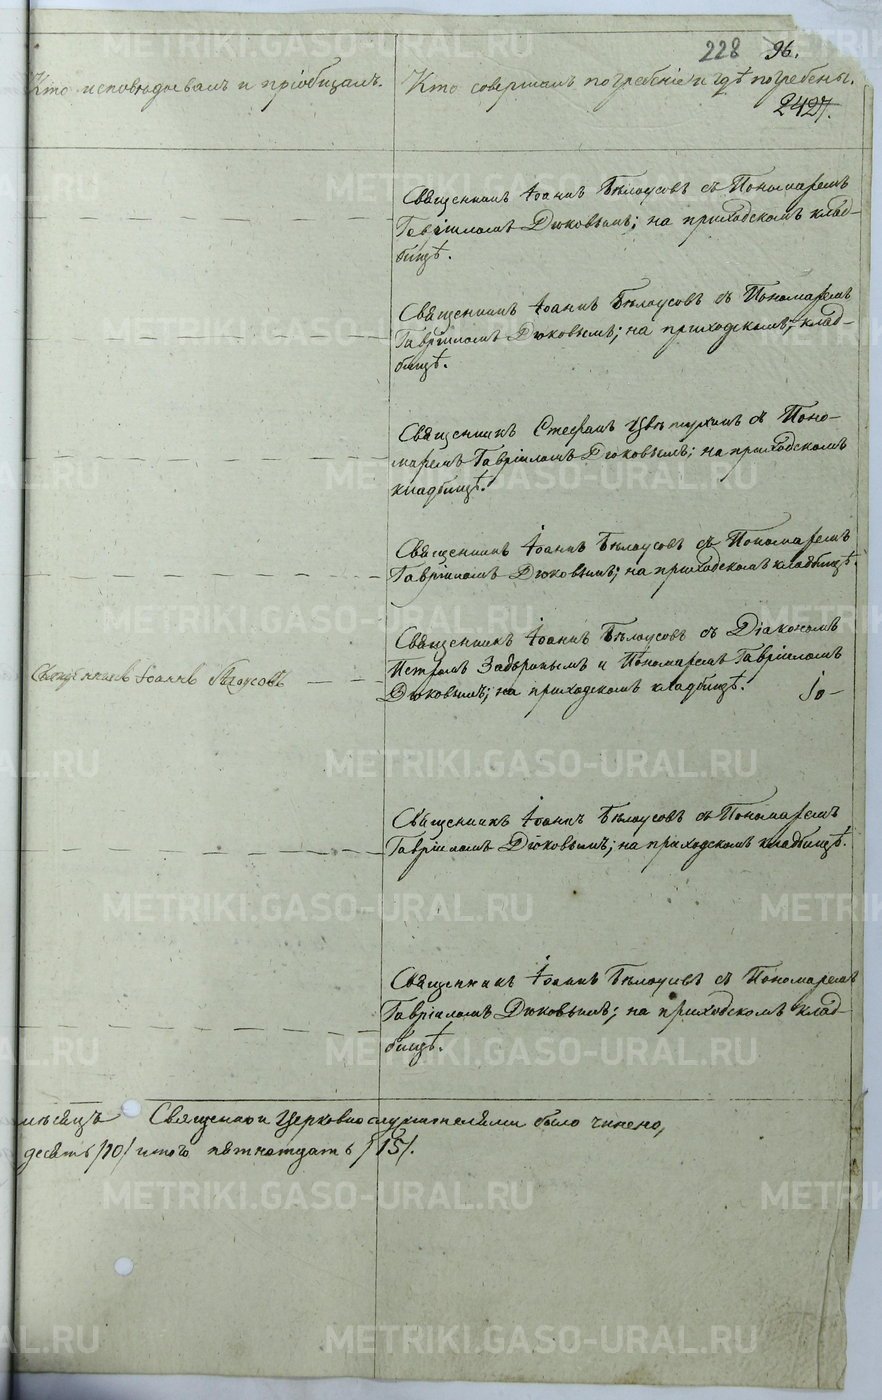 228 96.
Кто исповѣдовалъ и пріобщалъ.
Кто совершалъ погребеніе и гдѣ погребены.
2427.
Священникъ Іоаннъ Бѣлоусовъ съ Пономаремъ
Гавріиломъ Дюковымъ; на приходскомъ клад-
бищѣ.
Священникъ Іоаннъ Бѣлоусовъ съ Пономаремъ
Гавріиломъ Дюковымъ; на приходскомъ клад-
бищѣ.
Священникъ Стефанъ съ Поно-
маремъ Гавріиломъ Дюковымъ; на приходскомъ
кладбищѣ.
Священникъ Іоаннъ Бѣлоусовъ съ Пономаремъ
Гавріиломъ Дюковымъ; на приходскомъ кладбищѣ.
Священникъ Іоаннъ
Священникъ Іоаннъ Бѣлоусовъ съ Діакономъ
Петромъ и Пономаремъ Гавріиломъ
Дюковымъ; на приходскомъ кладбищѣ. Іо-
Священникъ Іоаннъ Бѣлоусовъ съ Пономаремъ
Гавріиломъ Дюковымъ; на приходскомъ кладбищѣ.
Священникъ Іоаннъ Бѣлоусовъ съ Пономаремъ
Гавріиломъ Дюковымъ; на приходскомъ клад-
бищѣ.
мѣсяцъ Священно и Церковнослужителями было чинено,
десять /10/ итого пятнатцать /15/.
METRIKI.GASO-URAL.RU